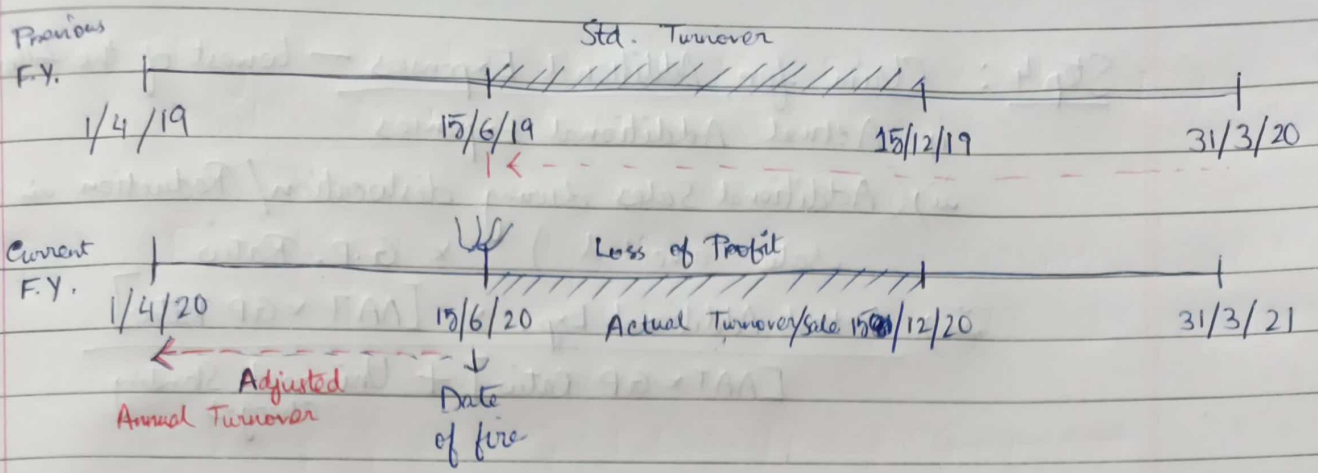 Previous
F.Y.
Std. Turnover
1/4/19 15/6/19 15/12/19 31/3/20
Current
F.Y.
Loss of Profit
1/4/20 15/6/20 Actual Turnover/Sale 15/12/20 31/3/21
Adjusted
Annual Turnover
Date
of fire